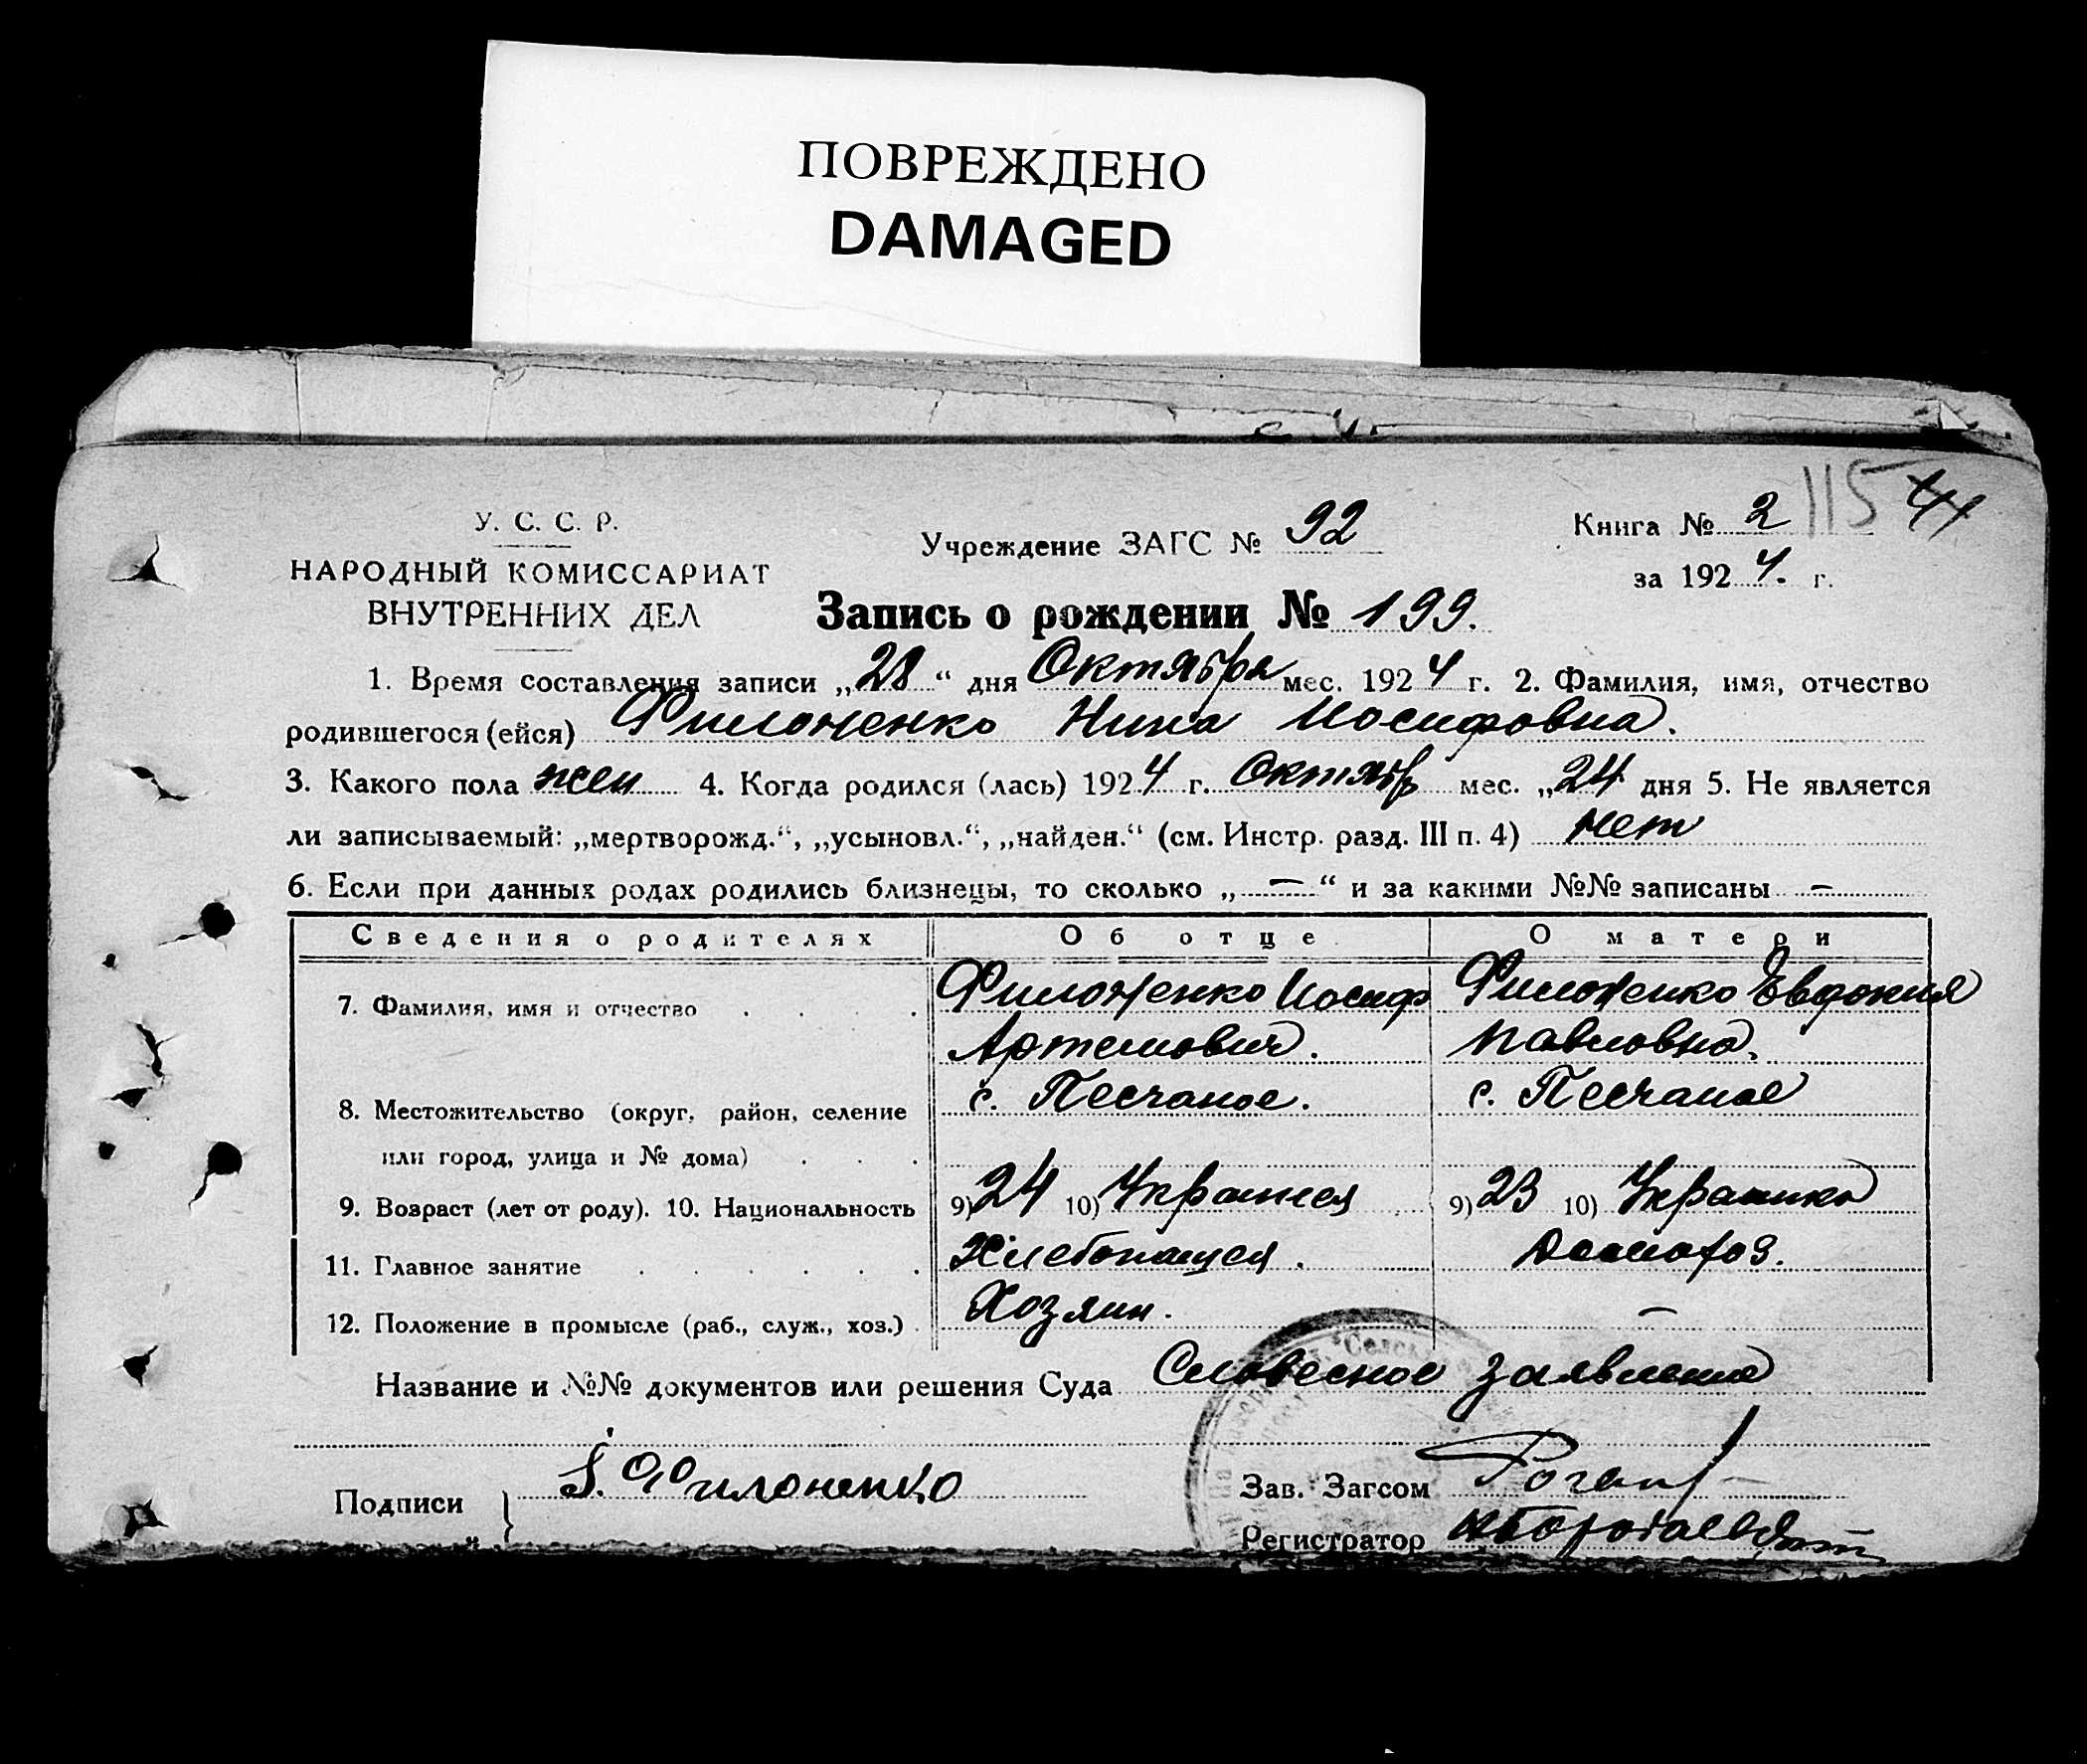 ПОВРЕЖДЕНО
DAMAGED
У. С. С. Р.
НАРОДНЫЙ КОМИССАРИАТ
ВНУТРЕННИХ ДЕЛ
Учреждение ЗАГС № 92
Книга № 2 115
за 1924. г.
Запись о рождении № 199.
1. Время составления записи „28“ дня Октября мес. 1924 г. 2. Фамилия, имя, отчество
родившегося (ейся) Филоненко Нина Иосифовна.
3. Какого пола жен 4. Когда родился (лась) 1924 г. Октябр мес. „24 дня 5. Не является
ли записываемый: „мертворожд.“, „усыновл.“, „найден.“ (см. Инстр. разд. III п. 4) нет
6. Если при данных родах родились близнецы, то сколько „—“ и за какими №№ записаны —
Сведения о родителях Об отце О матери
7. Фамилия, имя и отчество Филоненко Иосиф Филоненко Евдокия
Артемович. Павловна.
с. Песчаное. с. Песчаное
8. Местожительство (округ, район, селение
или город, улица и № дома)
9. Возраст (лет от роду). 10. Национальность 9) 24 10) Украинец 9) 23 10) Украинка
11. Главное занятие Хлебопашец. Домохоз.
12. Положение в промысле (раб., служ., хоз.) Хозяин. —
Название и №№ документов или решения Суда Словесное заявление
Подписи Филоненко
Зав. Загсом
Регистратор